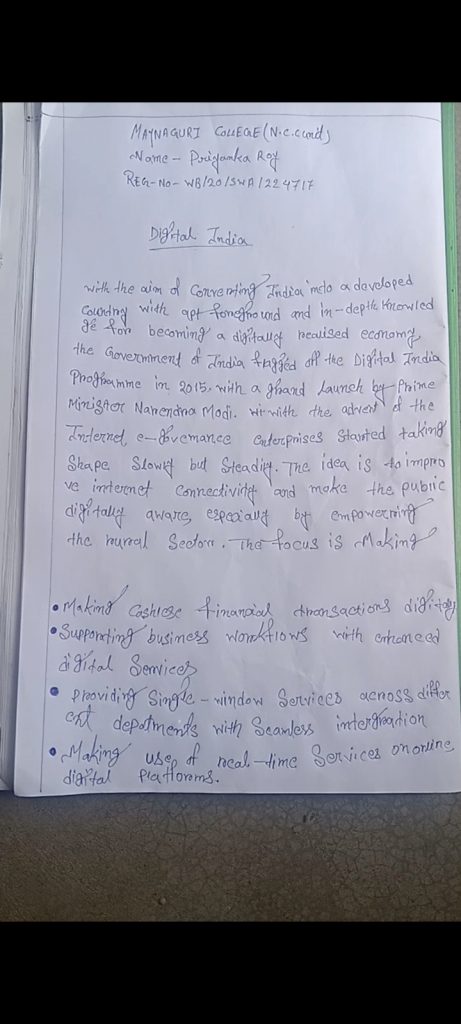 MAYNAGURI COLLEGE (N.C.C unit)
Name - Priyanka Roy
REG-No- WB/20/SWA/224717
Digital India
with the aim of Converting India into a developed
country with apt foreground and in-depth Knowled
ge for becoming a digitally realised economy,
the Government of India flagged off the Digital India
Programme in 2015. with a grand Launch by Prime
Minister Narendra Modi. with the advent of the
Internet e-Governance enterprises started taking
Shape Slowly but Steadily. The idea is to impro
ve internet Connectivity and make the public
digitally aware, especially by empowering
the rural Sector. The focus is Making
• Making Cashless financial transactions digitally
• Supporting business workflows with enhanced
digital Services
• providing Single-window Services across differ
ent depatments with Seamless intergration
• Making use of real-time Services on online
digital Platforms.